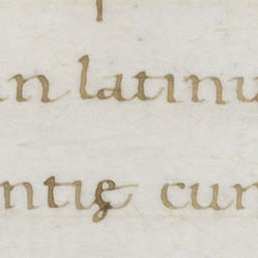 in latinu
ntię cum